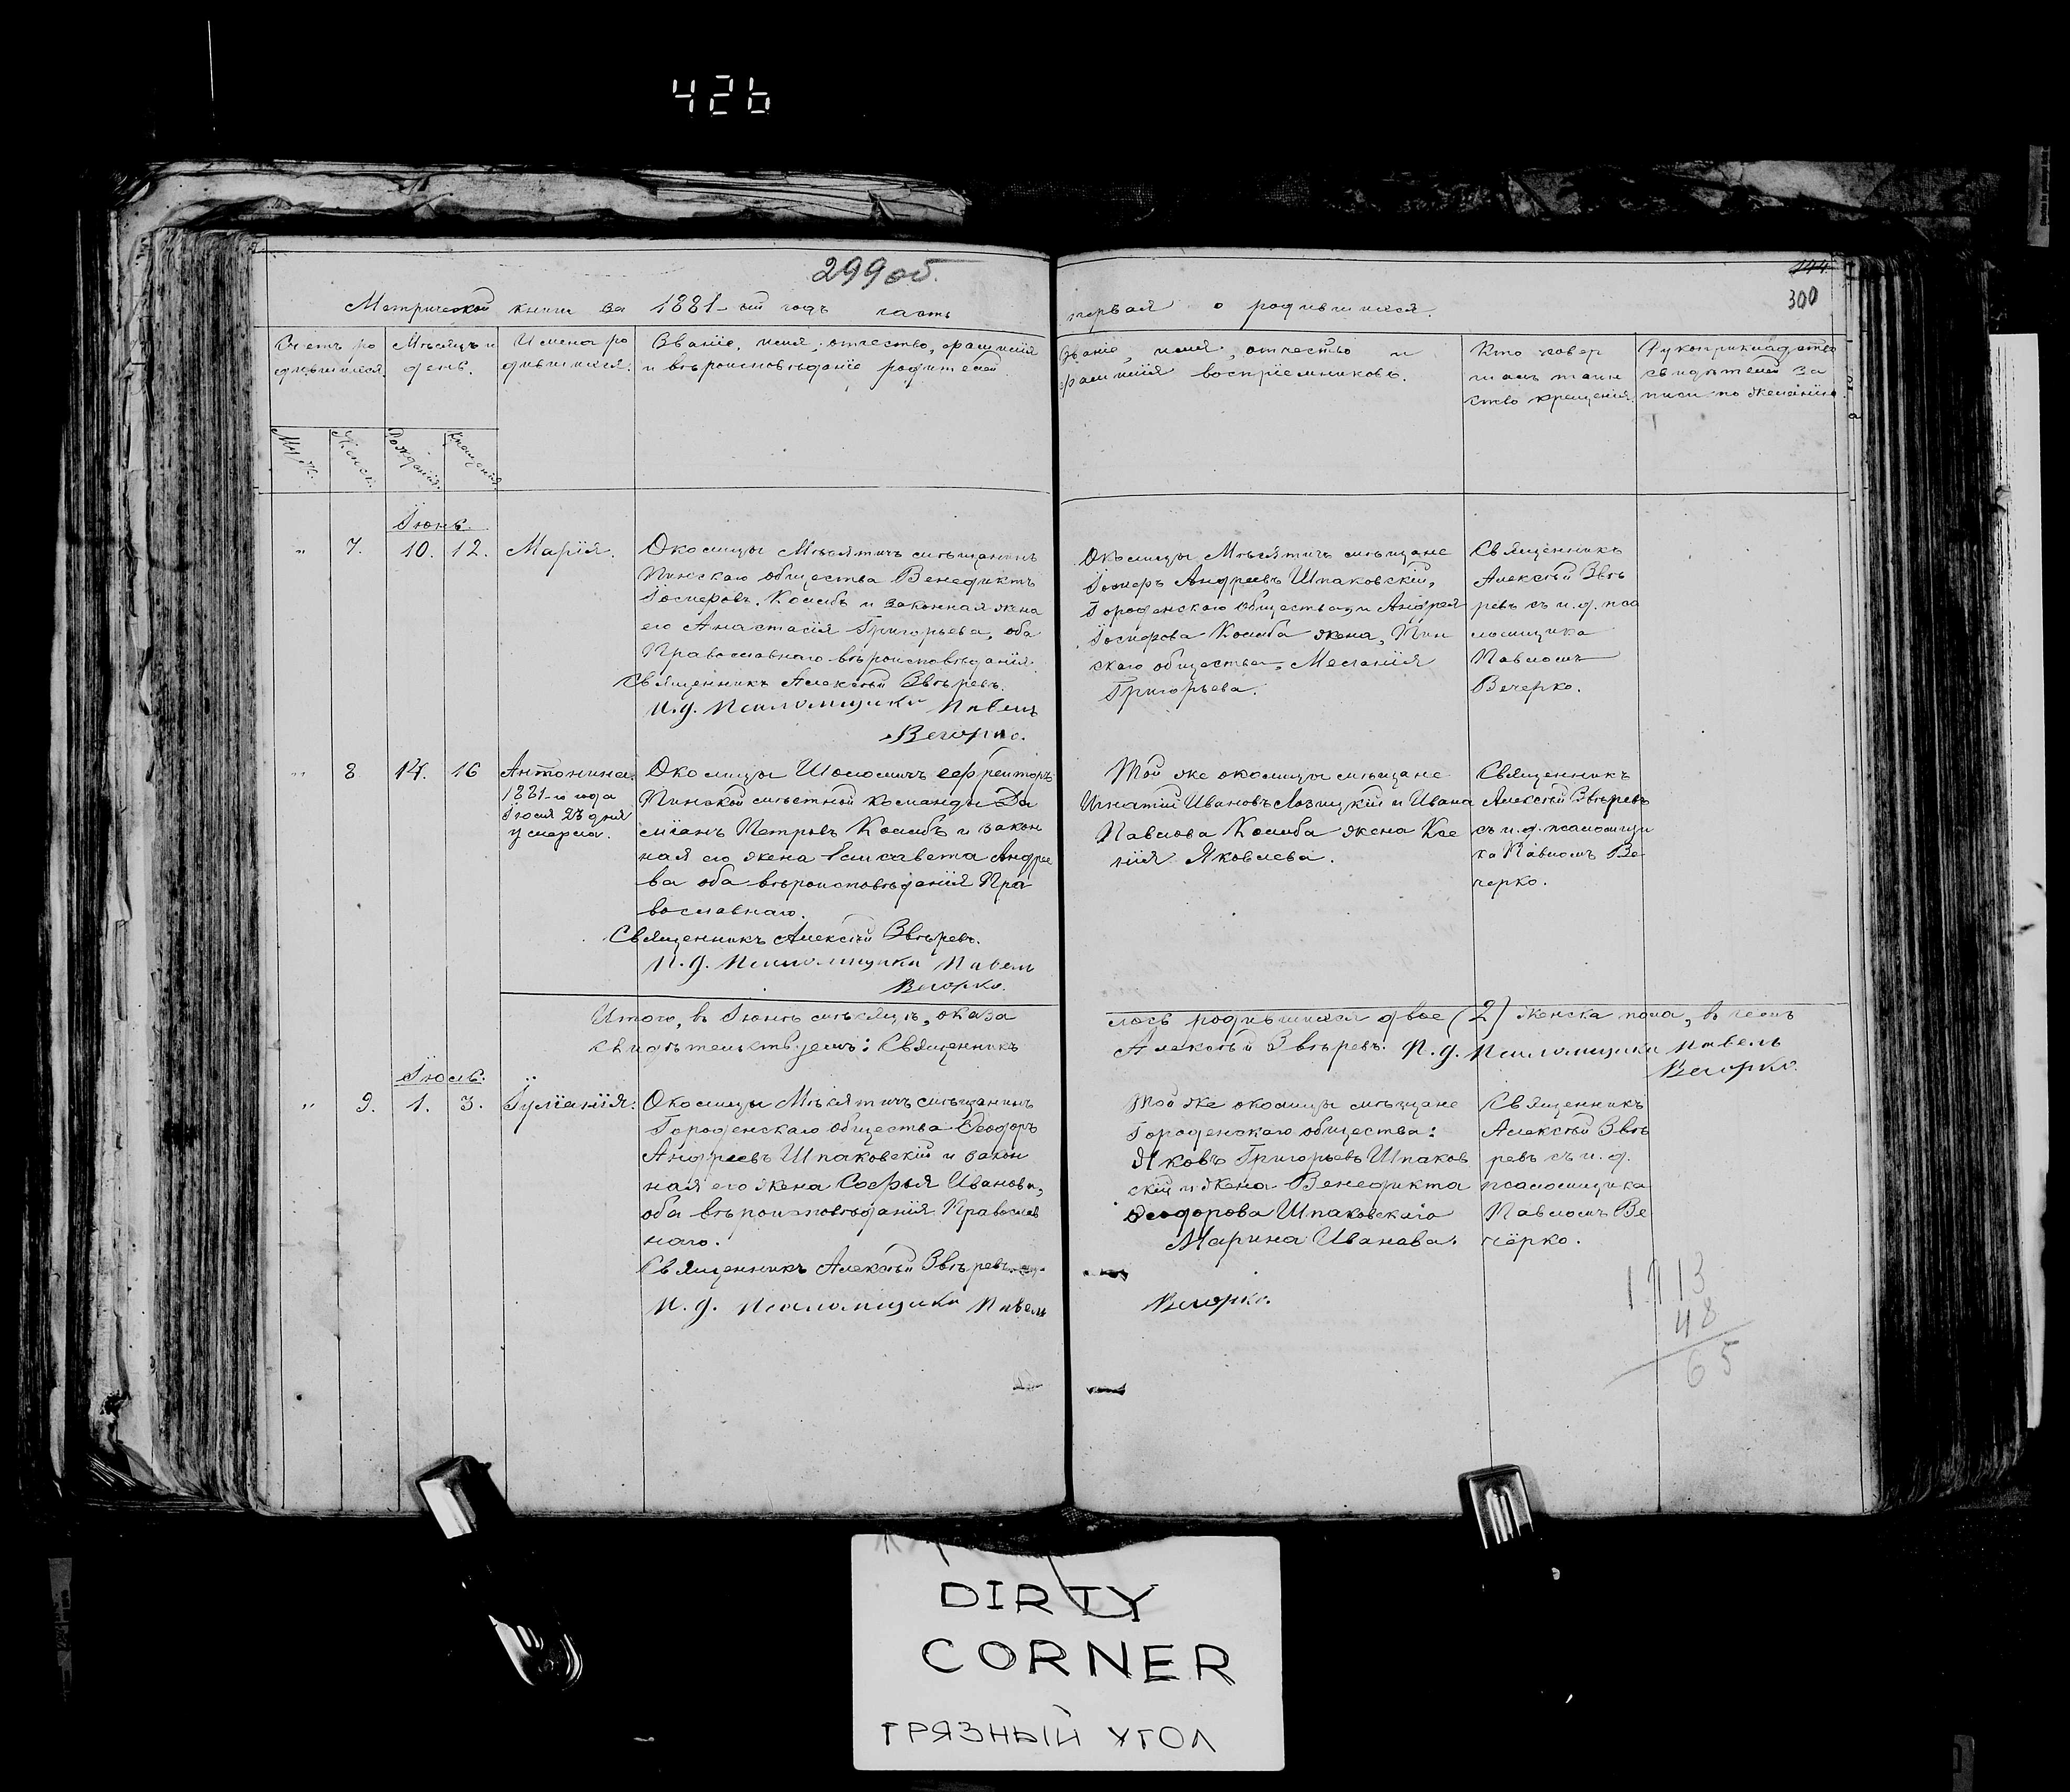 426
299 об.
144
300
Метрической книги за 1881-ый годъ часть первая о родившихся.
Счетъ ро
дившихся.
Мѣсяцъ и
день.
Имена ро
дившихся.
Званіе, имя, отчество, фамилія
и вѣроисповѣданіе родителей.
Званіе, имя, отчество и
фамилія воспріемниковъ.
Кто совер
шалъ таин
ство крещенія.
Рукоприкладство
свидѣтелей за
писи по желанію.
Муж.
Женск.
Рожденія.
Крещенія.
Іюнь.
" 7. 10. 12. Марія.
Околицы Мѣсятичъ мѣщанинъ
Пинскаго общества Венедиктъ
Іосифовъ Колбъ и законная жена
его Анастасія Григорьева, оба
Православнаго вѣроисповѣданія.
Священникъ Алексѣй Звѣревъ.
И. д. Псаломщика Павелъ
Вечорко.
Околицы Мѣсятичъ мѣщане
Іосифъ Андреевъ Шпаковскій,
Городенскаго общества и Андрея
Іосифова Колба жена, Пин
скаго общества, Меланія
Григорьева.
Священникъ
Алексѣй Звѣ
ревъ съ и. д. пса
ломщика
Павломъ
Вечерко.
" 8 14. 16 Антонина.
1881-го года
Іюля 23 дня
умерла.
Околицы Шоломичъ ефрейторъ
Пинской мѣстной команды Да
міанъ Петровъ Колбъ и закон
ная его жена Елисавета Андрее
ва оба вѣроисповѣданія Пра
вославнаго.
Священникъ Алексѣй Звѣревъ.
И. д. Псаломщика Павелъ
Вечорко.
Той же околицы мѣщане
Игнатій Ивановъ Лозицкій и Ивана
Павлова Колба жена Ксе
нія Яковлева.
Священникъ
Алексѣй Звѣревъ
съ и. д. псаломщи
ка Павломъ Ве
черко.
Итого, въ Іюнѣ мѣсяцѣ, оказа лось родившихся двое (2) женска пола, въ чемъ
свидѣтельствуемъ: Священникъ Алексѣй Звѣревъ. И. д. Псаломщика Павелъ
Вечорко.
Іюль.
" 9. 1. 3. Іуліанія.
Околицы Мѣсятичъ мѣщанинъ
Городенскаго общества Ѳеодоръ
Андреевъ Шпаковскій и закон
ная его жена Софья Иванова,
оба вѣроисповѣданія Православ
наго.
Священникъ Алексѣй Звѣревъ.
И. д. Псаломщика Павелъ Вечорко.
Той же околицы мѣщане
Городенскаго общества:
Яковъ Григорьевъ Шпаков
скій и жена Венедикта
Ѳеодорова Шпаковскаго
Марина Иванова.
Священникъ
Алексѣй Звѣ
ревъ съ и. д.
псаломщика
Павломъ Ве
чёрко.
13
48
65
DIRTY
CORNER
ГРЯЗНЫЙ УГОЛ